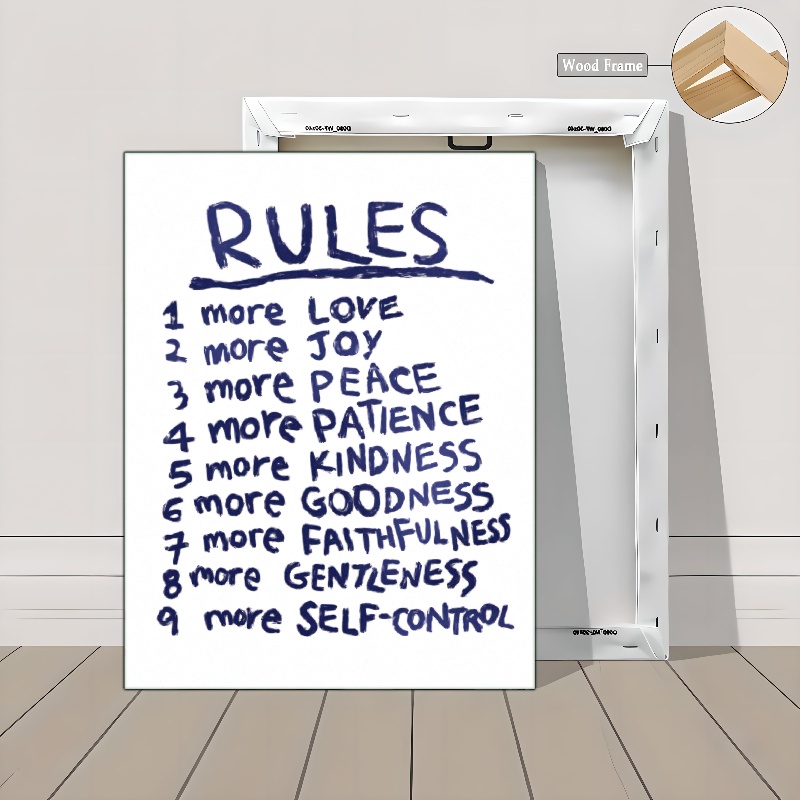 Wood Frame
RULES
1 more LOVE
2 more JOY
3 more PEACE
4 more PATIENCE
5 more KINDNESS
6 more GOODNESS
7 more FAITHFULNESS
8 more GENTLENESS
9 more SELF-CONTROL